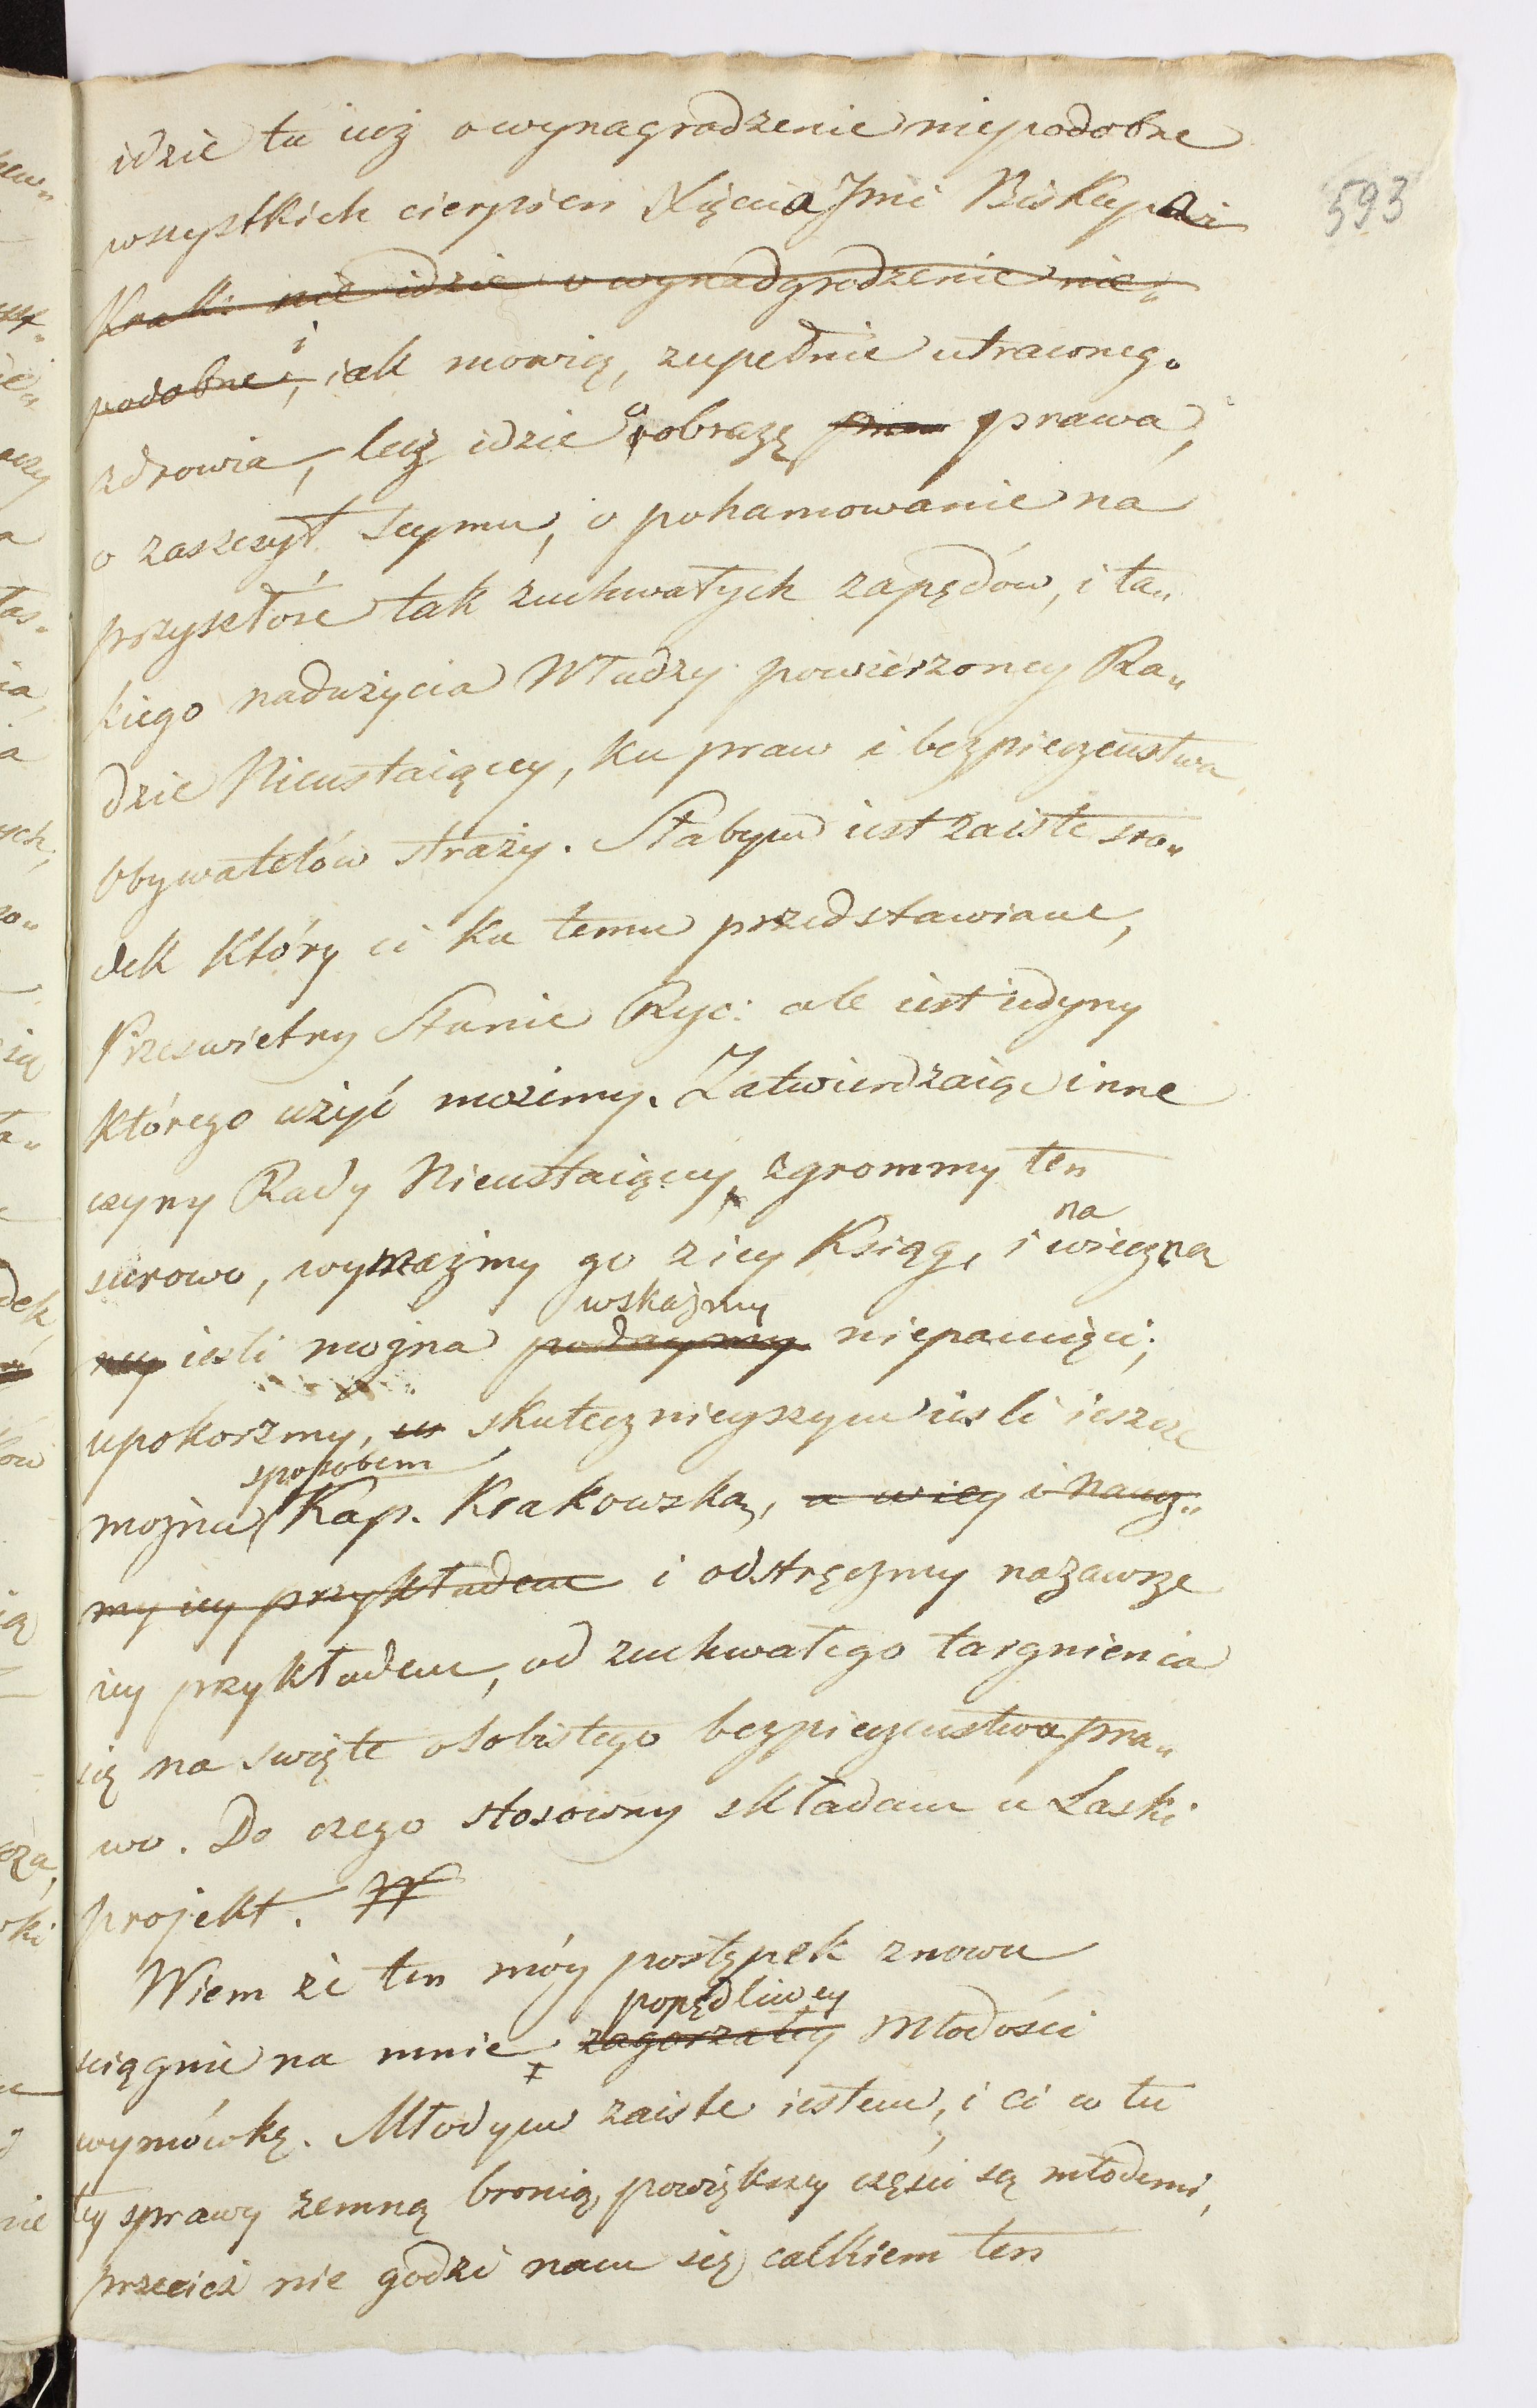 593
idzie tu iuż o wynagrodzenie niepodobne
wszystkich cierpien Xięcia Jmci Biskupa
Krak: nie idzie o wynadgrodzenie nie„
podobne, i iak mowią, zupełnie utraconego
zdrowia, lecz idzie o obrazę prawa,
o zaszczyt Seymu, o pohamowanie na
przyszłość tak zuchwałych zapędów, i ta„
kiego nadużycia Władzy powierzoney Ra„
dzie Nieustaiącey, ku praw i bezpieczeństwa
Obywatelów straży. Słabym iest zaiste szro„
dek który ci ku temu przedstawiam,
Prześwietny Stanie Ryc: ale iest iedyny
którego użyć możemy. Zatwierdzaiąc inne
czyny Rady Nieustaiącey, zgrommy ten
surowo, wymażmy go z iey Ksiąg, i na wieczną
iesli można wskażmy podaymy niepamięci;
upokorzmy, skutecznieyszym iesli ieszcze
można sposobem Kap. Krakowską, a wiey i naucz„
my iey przykładem i odstręczmy nazawsze
iey przykładem, od zuchwałego targnienia
się na święte osobistego bezpieczeństwa pra„
wo. Do czego stosowny składam u Laski
projekt. #
Wiem że ten móy postępek znowu
sciągnie na mnie popędliwey zagorzałey Młodości
wymówkę. Młodym zaiste iestem, i ci co tu
tey sprawy zemną bronią, powiększey części są młodemi,
przecież nie godzi nam się całkiem ten